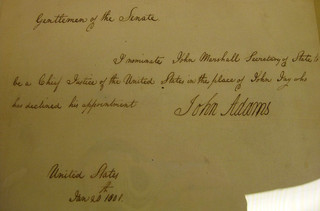 Gentlemen of the Senate
I nominate John Marshall Secretary of State to
be a Chief Justice of the United States in the place of John Jay who
has declined his appointment.
John Adams
United States
Jan 20th 1801.